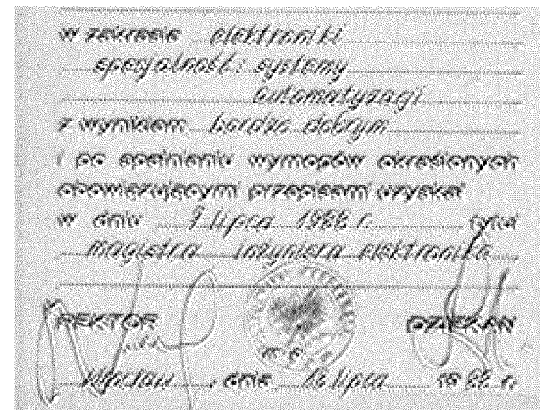 w zakresie elektroniki
specjalność: systemy
automatyzacji
z wynikiem bardzo dobrym
i po spełnieniu wymogów określonych
obowiązującymi przepisami uzyskał
w dniu 7 lipca 1988 r. tytuł
magistra inżyniera elektronika
REKTOR DZIEKAN
Wrocław, dnia lipca 1988 r.